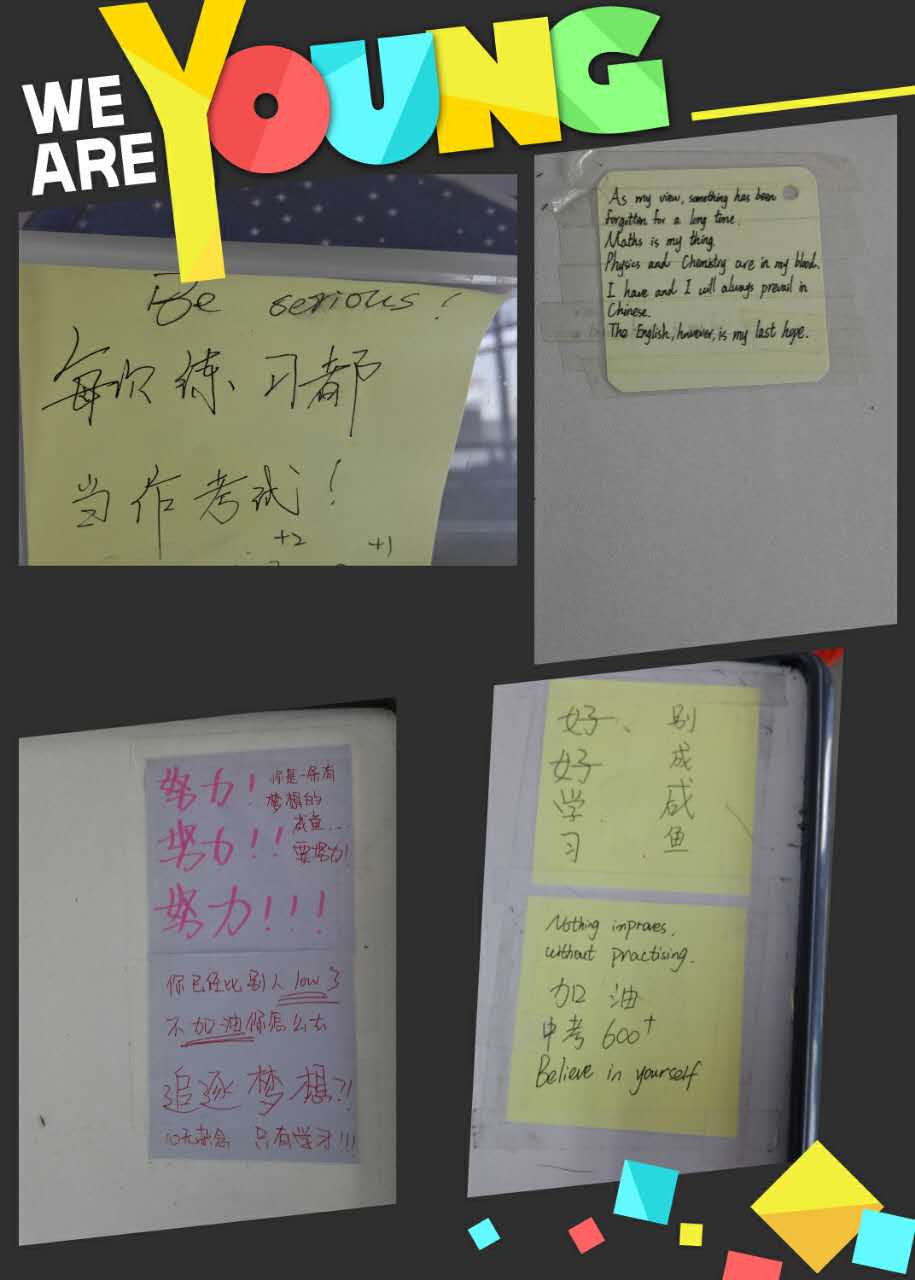 WE
ARE
YOUNG
Be serious!
每次练习都
当作考试!
+2 +1
As my view, something has been
forgotten for a long time.
Maths is my thing.
Physics and Chemistry are in my blood.
I have and I will always prevail in
Chinese.
The English, however, is my last hope.
努力!
努力!!
努力!!!
你是一条有
梦想的
咸鱼...
要努力!
你已经比别人low了
不加油你怎么去
追逐梦想?!
心无杂念 只有学习!!!
好好学习、
别成咸鱼
Nothing improves.
without practising.
加油
中考 600+
Believe in yourself